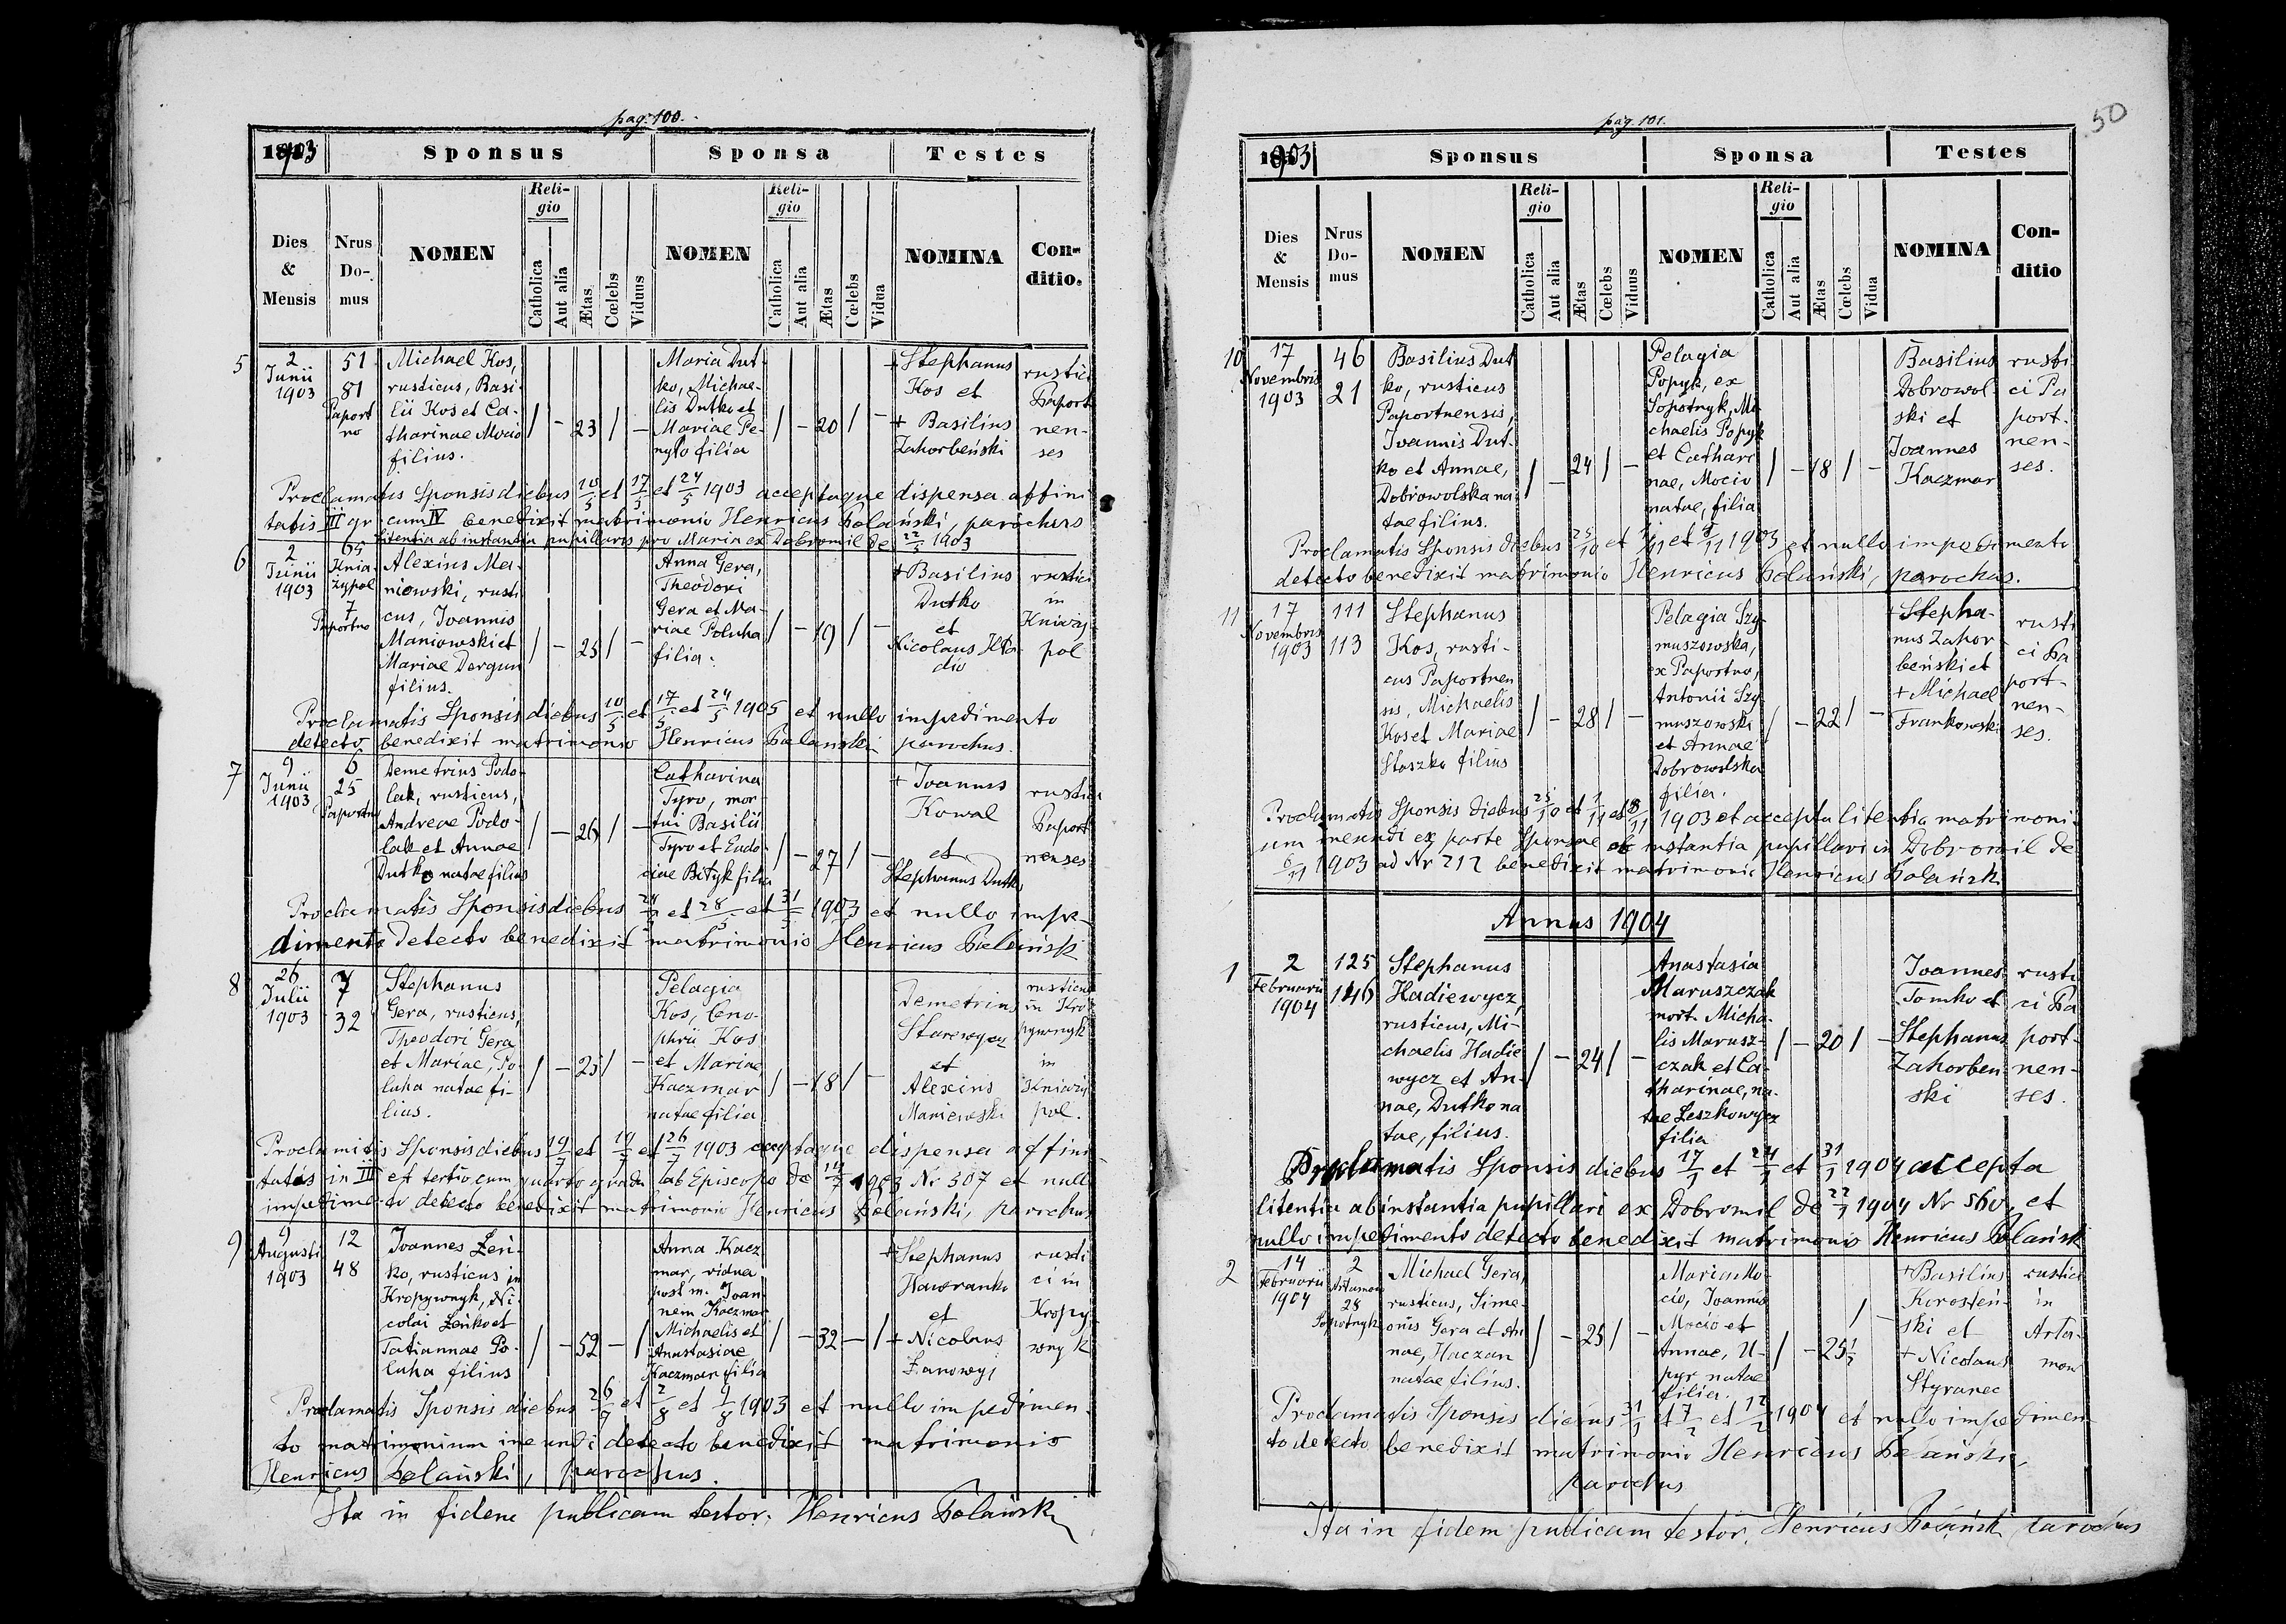 pag. 100.
1903 Sponsus Sponsa Testes
Dies & Mensis
Nrus Do- mus
NOMEN
Reli- gio
Catholica
Aut alia
Ætas
Cœlebs
Viduus
NOMEN
Reli- gio
Catholica
Aut alia
Ætas
Cœlebs
Vidua
NOMINA
Con- ditio.
5
2
Junii
1903
51
81
Paport
no
Michael Kos,
rusticus, Basi-
lii Kos et Ca-
tharinae Mocio
filius.
/ - 23 / -
Maria Dut-
ko, Michae-
lis Dutko et
Mariae Pe-
nylo filia
/ - 20 / -
+ Stephanus
Kos et
+ Basilius
Zahorbeński
rustici
Paport
nen-
ses
Proclamatis Sponsis diebus 10/5 et 17/5 et 24/5 1903 acceptaque dispensa affini
tatis III gr cum IV benedixit matrimonio Henricus Polański, parochus
litentia ab instantia pupillaris pro Maria ex Dobromil de 22/5 1903
6
2
Junii
1903
65
Knia-
żypol
7
Paportno
Alexius Ma-
niowski, rusti
cus, Joannis
Maniowski et
Mariae Dergun
filius.
/ - 25 / -
Anna Gera,
Theodori
Gera et Ma-
riae Poluha
filia.
/ - 19 / -
+ Basilius
Dutko
et
Nicolaus Hla-
dio
rustici
in
Kniaży
pol
Proclamatis Sponsis diebus 10/5 et 17/5 et 24/5 1905 et nullo impedimento
detecto benedixit matrimonio Henricus Polański parochus.
7
9
Junii
1903
6
25
Paportno
Demetrius Podo-
lak, rusticus,
Andreae Podo-
lak et Annae
Dutko natae filius
/ - 26 / -
Catharina
Tyro, mor-
tui Basilii
Tyro et Eudo
ciae Bityk filia
/ - 27 / -
+ Joannes
Kowal
et
Stephanus Dutko
rustici
Paport
nenses
Proclamatis Sponsis diebus 24/5 et 28/5 et 31/5 1903 et nullo impe-
dimento detecto benedixit matrimonio Henricus Polański
8
26
Julii
1903
7
32
Stephanus
Gera, rusticus,
Theodori Gera
et Mariae, Po-
luha natae fi-
lius.
/ - 25 / -
Pelagia
Kos, Ceno-
phrii Kos
et Mariae
Kaczmar
natae filia
/ - 18 / -
Demetrius
Starewycz
et
Alexius
Maniewski
rusticus
in Kro
pywnyk
in
Kniaży
pol.
Proclamatis Sponsis diebus 19/7 et 19/7 et 26/7 1903 acceptaque dispensa affini
tatis in III et tertio cum quarto gradu ab Episcopo de 14/7 1903 Nr 507 et nullo
impedimento detecto benedixit matrimonio Henricus Polański, parochus
9
9
Augusti
1903
12
48
Joannes Żeń-
ko, rusticus in
Kropywnyk, Ni-
colai Żeńko et
Tatiannae Po-
luha filius
/ - 52 - /
Anna Kacz
mar, vidua
post m. Joan-
nem Kaczmar
Michaelis et
Anastasiae
Kaczmar filia
/ - 32 - /
+ Stephanus
Hawranko
et
+ Nicolaus
Łanowyj
rusti
ci in
Kropy
wnyk
Proclamatis Sponsis diebus 26/7 et 2/8 et 9/8 1903 et nullo impedimen-
to matrimonium ineundi detecto benedixit matrimonio
Henricus Polański, parochus.
Ita in fidem publicam testor. Henricus Polański
50
pag. 101.
1903 Sponsus Sponsa Testes
Dies & Mensis
Nrus Do- mus
NOMEN
Reli- gio
Catholica
Aut alia
Ætas
Cœlebs
Viduus
NOMEN
Reli- gio
Catholica
Aut alia
Ætas
Cœlebs
Vidua
NOMINA
Con- ditio
10
17
Novembris
1903
46
21
Basilius Dut
ko, rusticus
Paportnensis,
Joannis Dut-
ko et Annae,
Dobrowolska na
tae filius.
/ - 24 / -
Pelagia
Popyk, ex
Sopotnyk, Mi
chaelis Popyk
et Cathari
nae, Mocio
natae, filia
/ - 18 / -
Basilius
Dobrowol-
ski et
Joannes
Kaczmar
rusti
ci Pa
port-
nen-
ses.
Proclamatis Sponsis diebus 25/10 et 1/11 et 8/11 1903 et nullo impedimento
detecto benedixit matrimonio Henricus Polański, parochus.
11
17
Novembris
1903
111
113
Stephanus
Kos, rusti-
cus Paportnen
sis, Michaelis
Kos et Mariae
Staszko filius
/ - 28 / -
Pelagia Szy-
muszowska,
ex Paportno,
Antonii Szy
muszowski
et Annae
Dobrowolska
filia.
/ - 22 / -
+ Stepha-
nus Zahor
beński et
+ Michael
Frankowski
rusti
ci Pa
port-
nen-
ses.
Proclamatis Sponsis diebus 25/10 et 1/11 et 8/11 1903 et accepta litentia matrimoni-
um ineundi ex parte Sponsae ab instantia pupillari in Dobromil de
6/11 1903 ad Nr 212 benedixit matrimonio Henricus Polański
Annus 1904
1
2
Februarii
1904
125
146
Stephanus
Hadiewycz,
rusticus, Mi-
chaelis Hadie
wycz et An-
nae, Dutko na
tae, filius.
/ - 24 / -
Anastasia
Maruszczak
mort. Micha-
lis Marusz-
czak et Ca-
tharinae, na-
tae Leszkowycz
filia
/ - 20 / -
Joannes
Tomko et
Stephanus
Zahorben
ski
rusti
ci Pa
port-
nen-
ses.
Proclamatis Sponsis diebus 17/1 et 24/1 et 31/1 1904 accepta
litentia ab instantia pupillari ex Dobromil de 22/1 1904 Nr 560, et
nullo impedimento detecto benedixit matrimonio Henricus Polański
2
14
Februarii
1904
2
Artamow
28
Sopotnyk
Michael Gera,
rusticus, Sime-
onis Gera et An
nae, Haczan
natae filius.
/ - 25 / -
Maria Mo-
cio, Joannis
Mocio et
Annae, U-
pyr natae
filia.
/ - 25 1/2 / -
+ Basilius
Korosteń-
ski et
+ Nicolaus
Styranec
rustici
in
Arta-
mow
Proclamatis Sponsis diebus 31/1 et 7/2 et 12/2 1904 et nullo impedimen
to detecto benedixit matrimonio Henricus Polański,
parochus
Ita in fidem publicam testor. Henricus Polański parochus